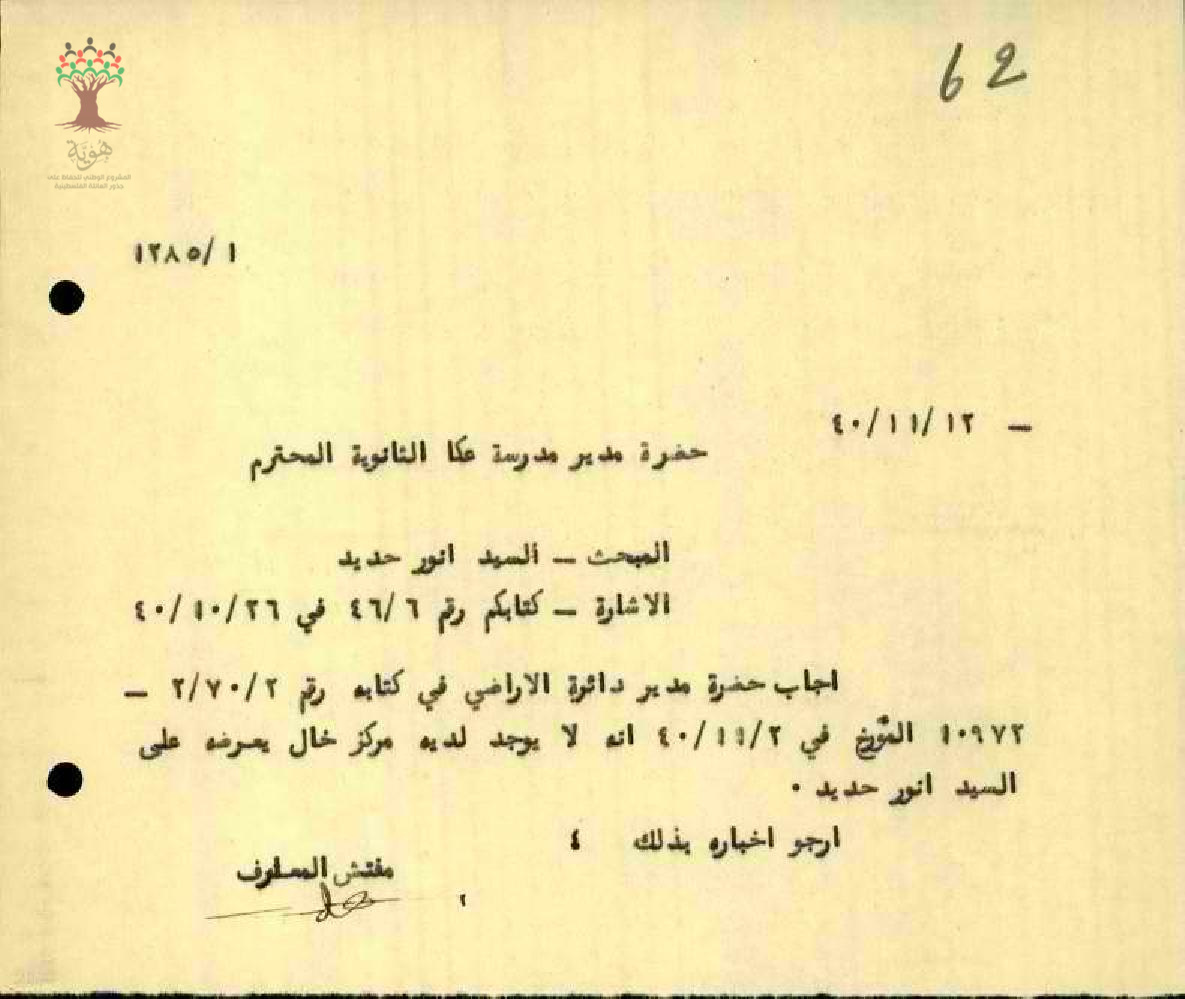 62
هوية
المشروع الوطني للحفاظ على
جذور العائلة الفلسطينية
١٢٨٥/ ١
ـ ٤٠/١١/١٢
حضرة مدير مدرسة عكا الثانوية المحترم
المبحث ـ السيد انور حديد
الاشارة ـ كتابكم رقم ٤٦/٦ في ٤٠/١٠/٢٦
اجاب حضرة مدير دائرة الاراضي في كتابه رقم ٢/٧٠/٢ ـ
١٠٩٧٢ المؤرخ في ٤٠/١١/٢ انه لا يوجد لديه مركز خال يعرضه على
السيد انور حديد ٠
ارجو اخباره بذلك ٤
مفتش المعارف